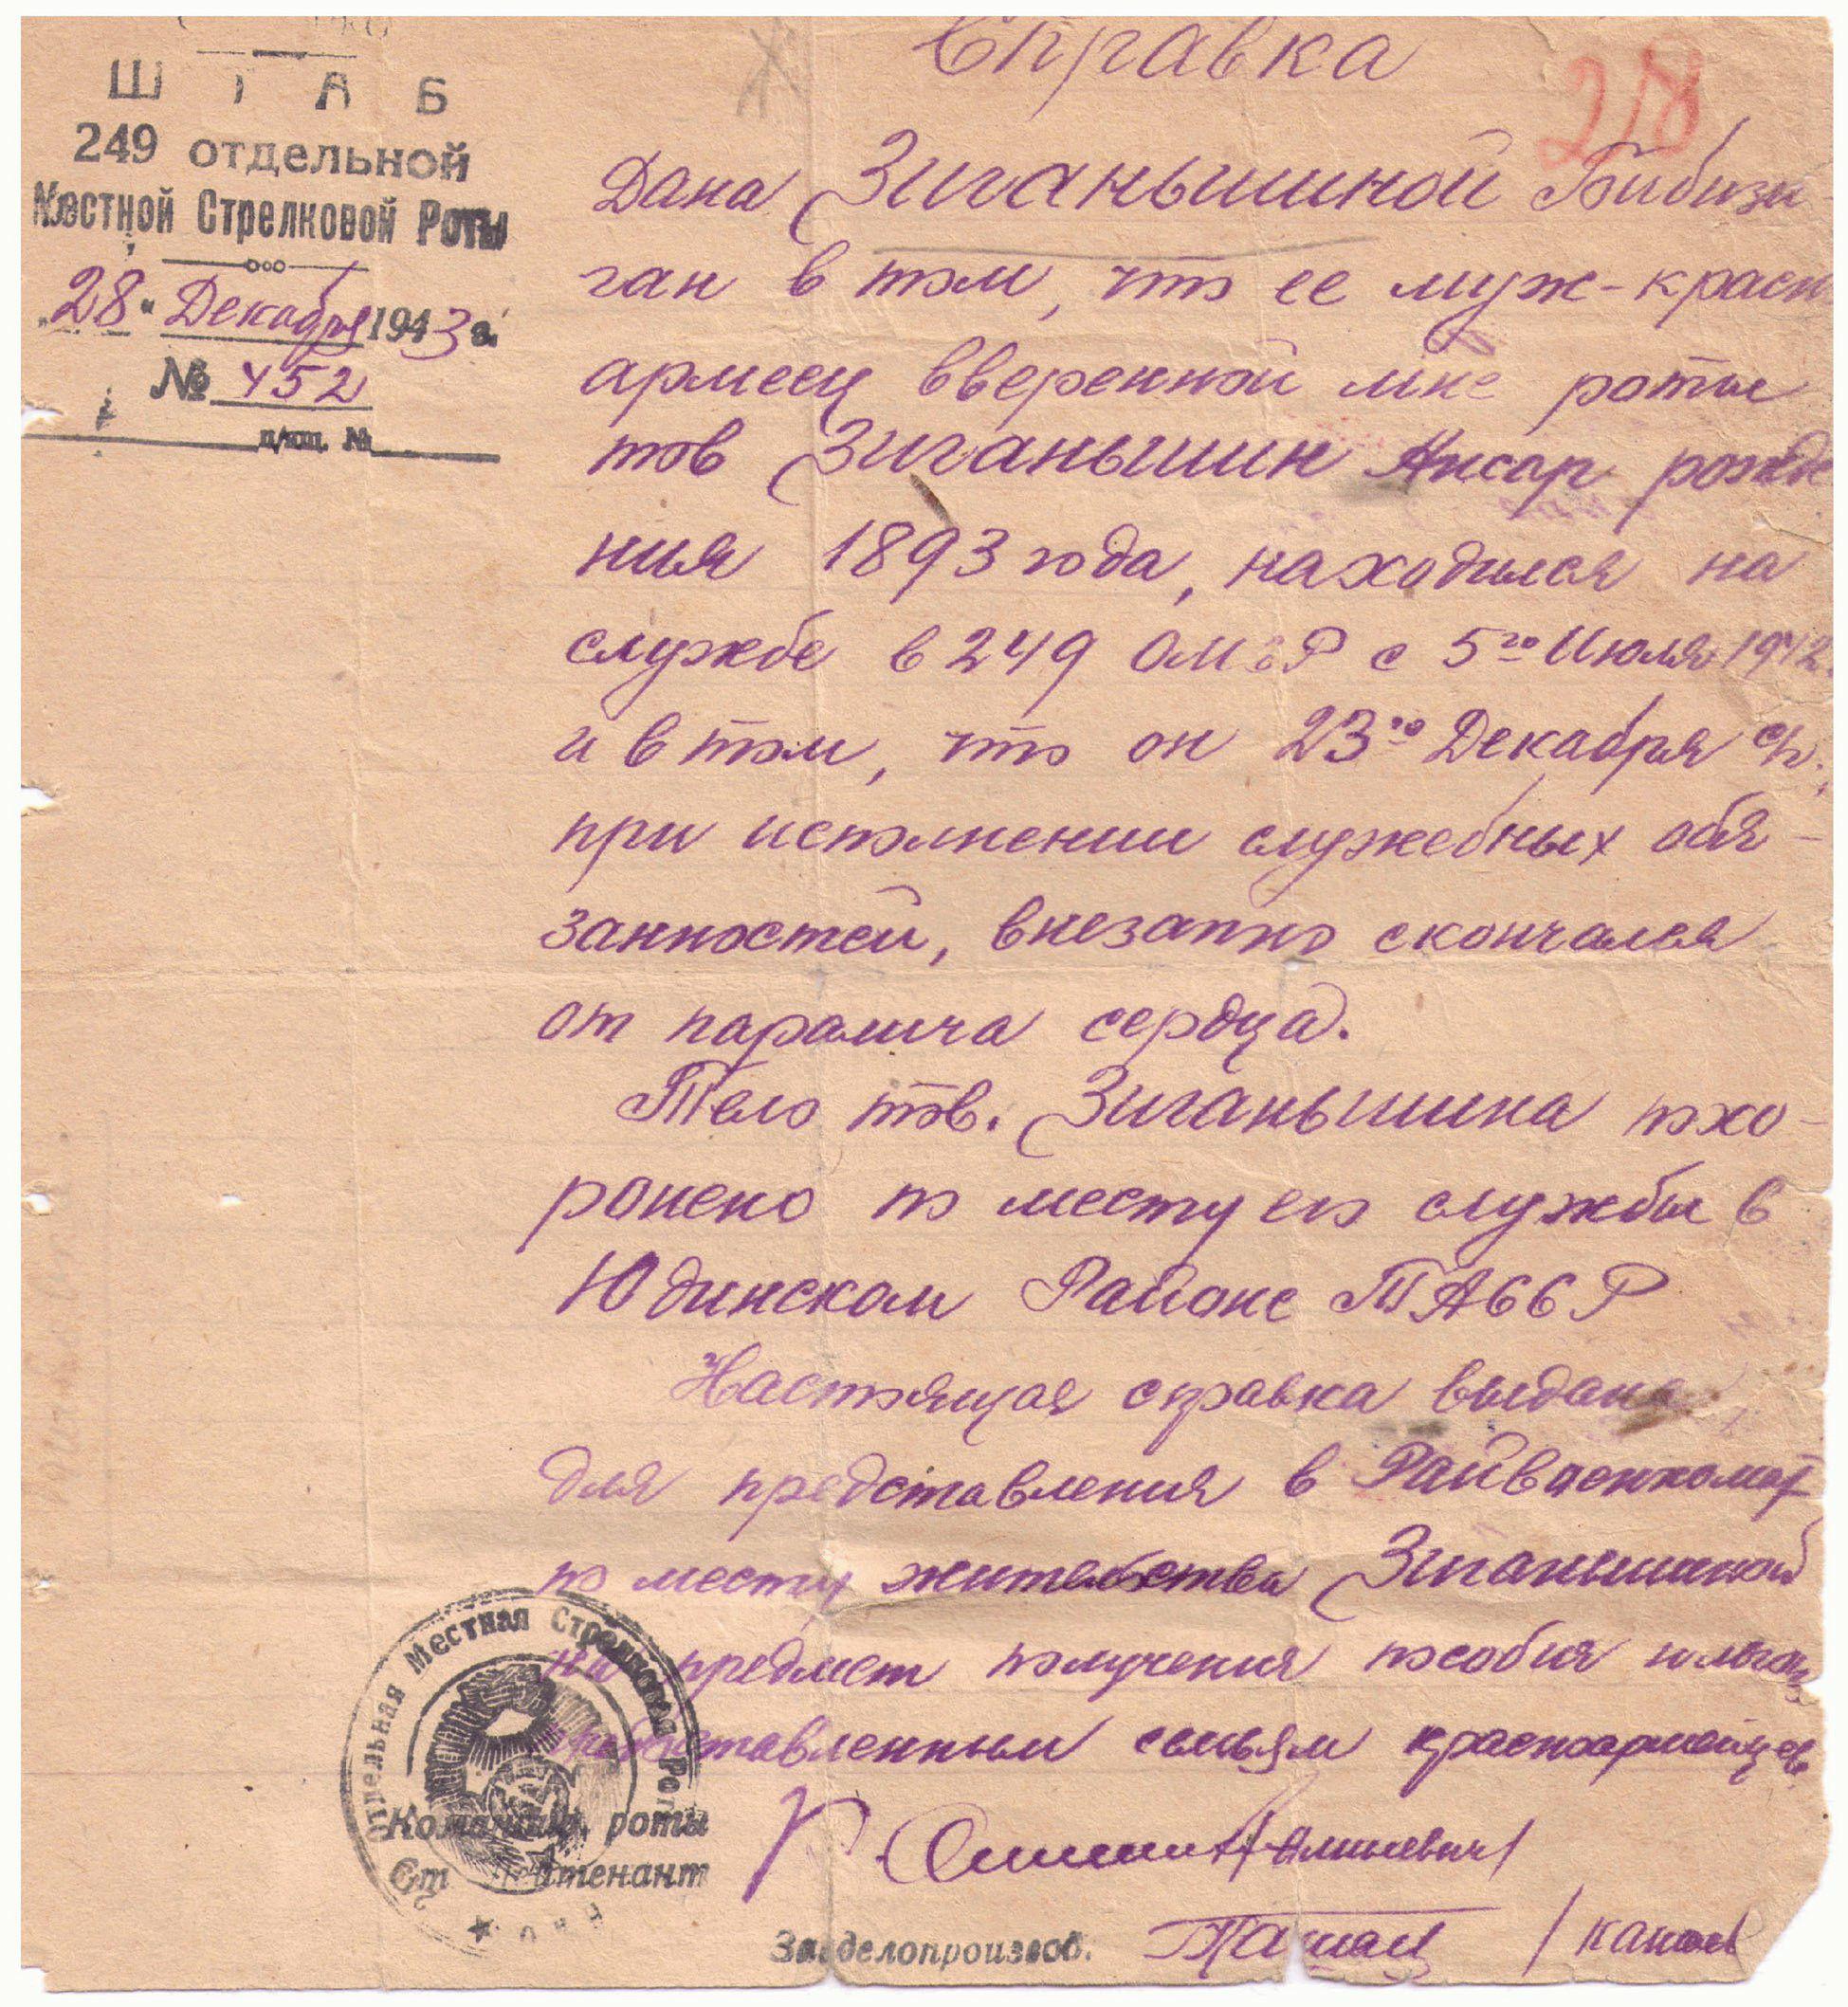 Справка
28
ШТАБ
249 отдельной
Местной Стрелковой Роты
"28" Декабря 1943 г.
№ 452
п/ящ. №
Дана Зиганьшиной Бибизи-
ган в том, что ее муж-красн
армеец вверенной мне роты
тов Зиганьшин Ансар рожде
ния 1893 года, находился на
службе в 249 ОМСР с 5го Июля 1942
и в том, что он 23го Декабря с/г.,
при исполнении служебных обя-
занностей, внезапно скончался
от паралича сердца.
Тело тов. Зиганьшина похо-
ронено по месту его службы в
Юдинском Районе ТАССР
Настоящая справка выдана
для представления в Райвоенкомат
по месту жительства Зиганьшиной
на предмет получения пособия и льгот,
предоставленным семьям красноармейцев
Отдельная Местная Стрелковая Рота
Командир роты
Ст лейтенант
Зав делопроизвод.